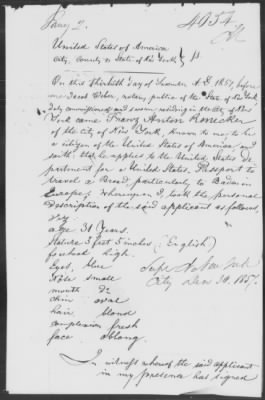 Jany 2.
4954
United States of America
City, County & State of New York } ss.
On this thirtieth day of December A.D. 1857, before
me notary public of the State of New York,
duly commissioned and sworn, residing in the City of New
York came Franz Anton
of the city of New York, known to me, to be
a citizen of the United States of America, and
saith, that he applies to the United States De
partment for a United States Passport to
travel particularly to Baden in
Europe; whereupon I took the personal
description of the said applicant as follows,
viz:
age 31 years.
Stature 5 feet 5 inches (English)
forehead high.
Eyes, blue
Nose small
mouth do
chin oval
hair blond
complexion fresh
face oblong.
New York
City Dec 30. 1857.
In witness whereof the said applicant
in my presence has signed